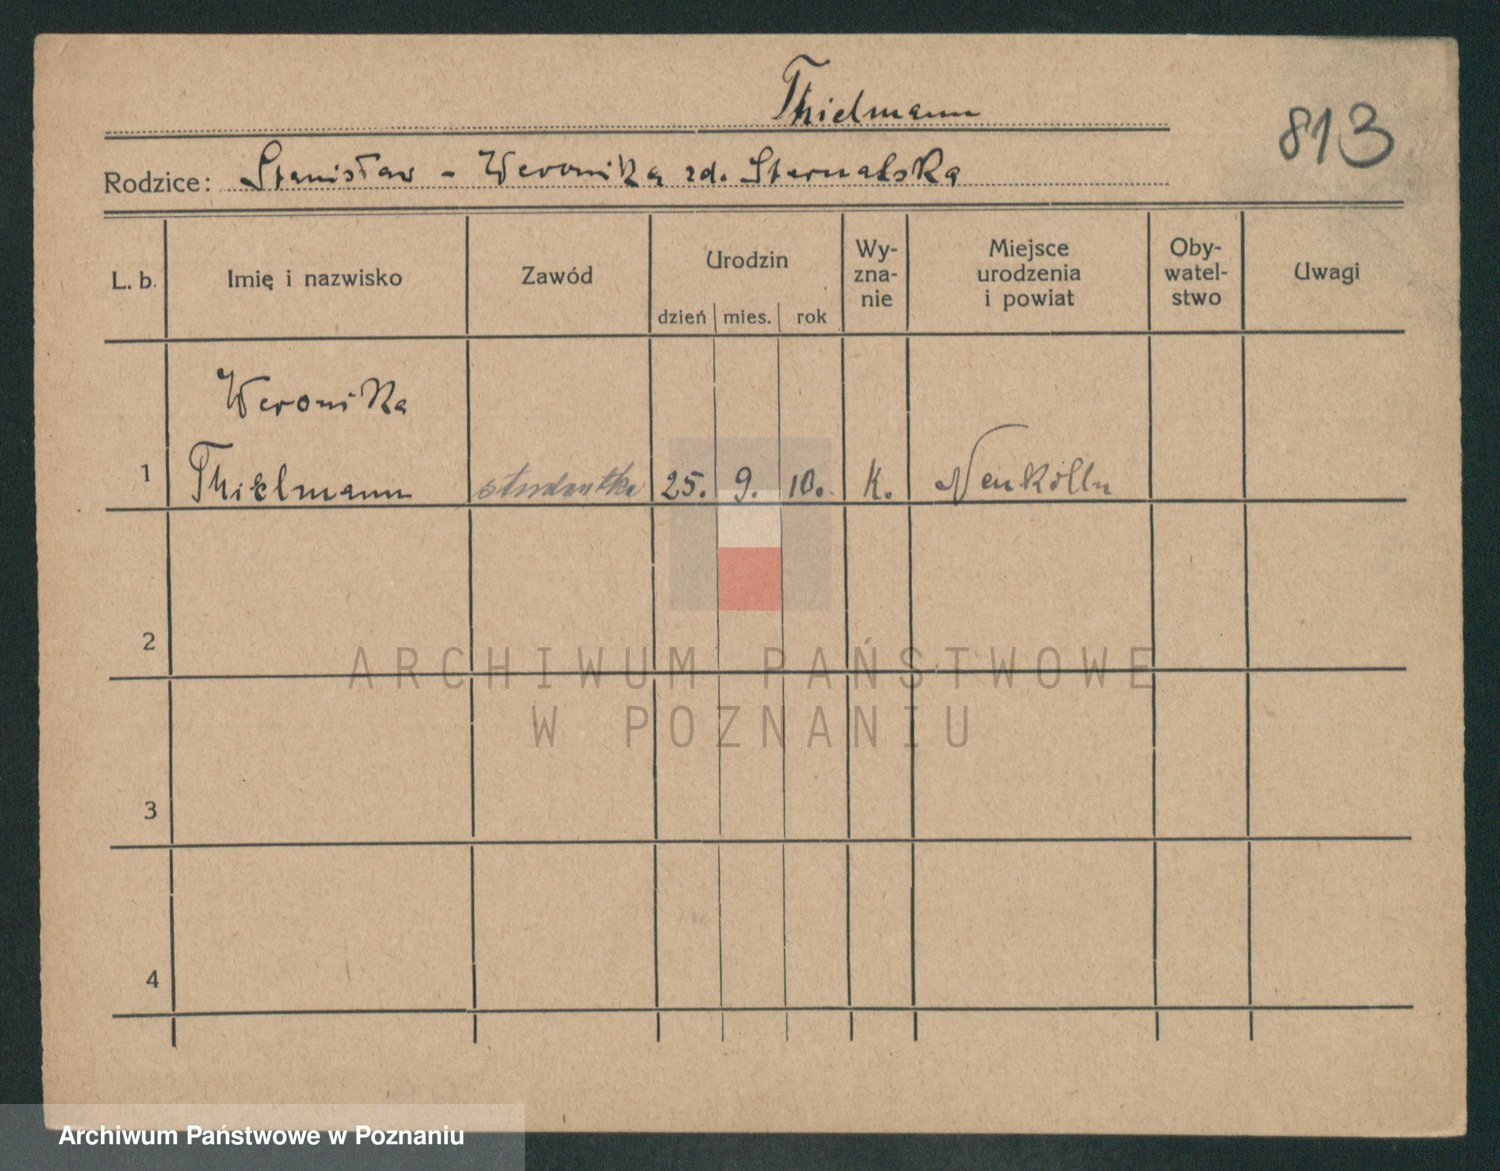 Thielmann
813
Rodzice: Stanisław - Weronika zd. Sternalska
L. b.
Imię i nazwisko
Zawód
Urodzin
dzień mies. rok
Wy-
zna-
nie
Miejsce
urodzenia
i powiat
Oby-
watel-
stwo
Uwagi
Weronika
1 Thielmann studentka 25. 9. 10. K. Neukölln
2
3
4
ARCHIWUM PAŃSTWOWE
W POZNANIU
Archiwum Państwowe w Poznaniu